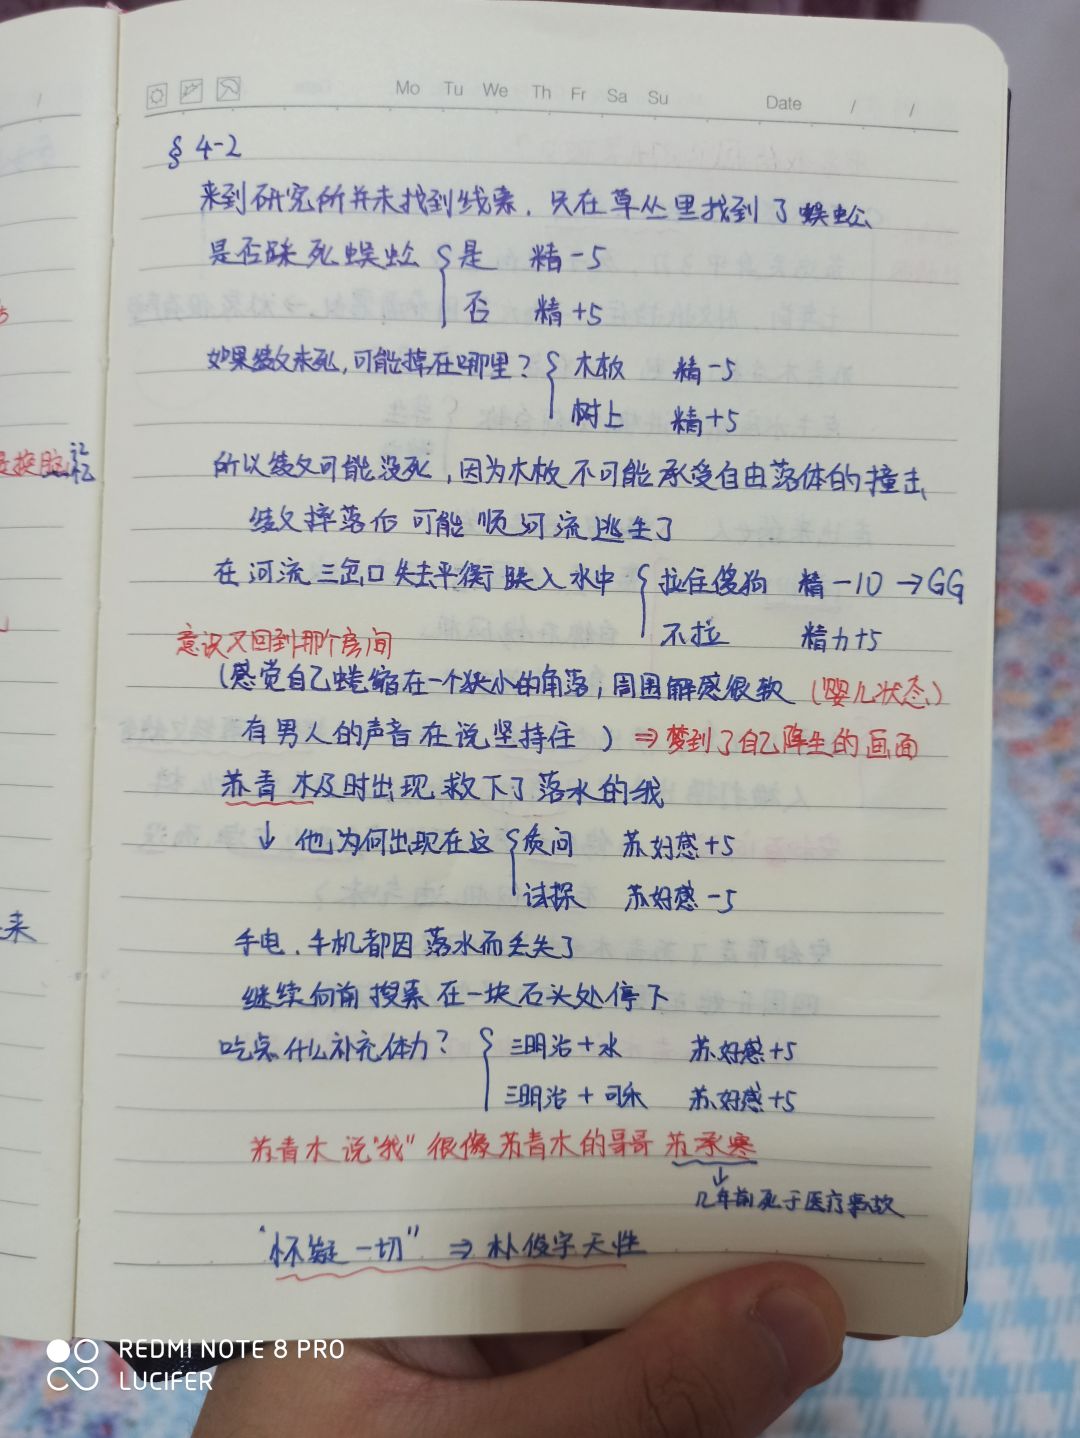 Mo Tu We Th Fr Sa Su Date / /
§ 4-2
来到研究所并未找到线索，只在草丛里找到了蜈蚣
是否踩死蜈蚣 { 是 精-5
否 精+5
如果继父未死，可能掉在哪里？ { 木板 精-5
树上 精+5
所以继父可能没死，因为木板不可能承受自由落体的撞击，
继父摔落后可能顺河流逃生了
在河流三岔口失去平衡跌入水中 { 拉住傻狗 精-10 →GG
不拉 精力+5
意识又回到那个房间
(感觉自己蜷缩在一个狭小的角落，周围解感很软 (婴儿状态)
有男人的声音在说坚持住) ⇒ 梦到了自己降生的画面
苏青木及时出现救下了落水的我
↓ 他为何出现在这 { 质问 苏好感+5
试探 苏好感-5
手电、手机都因落水而丢失了
继续向前搜索在一块石头处停下
吃点什么补充体力？ { 三明治+水 苏好感+5
三明治+可乐 苏好感+5
苏青木说"我"很像苏青木的哥哥苏承寒
↓
几年前死于医疗事故
"怀疑一切" ⇒ 朴俊宇天性
记忆
来
REDMI NOTE 8 PRO
LUCIFER